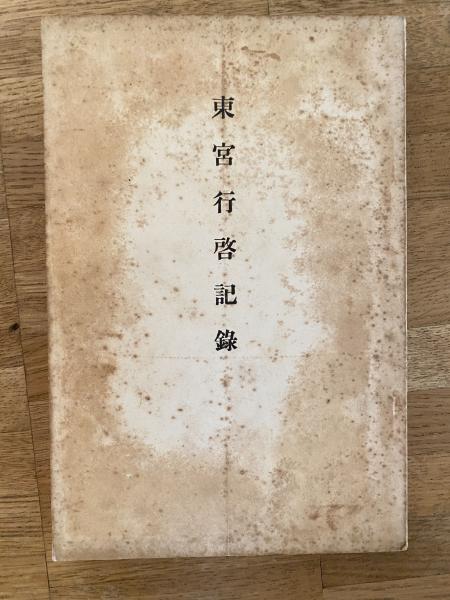 東宮行啓記錄